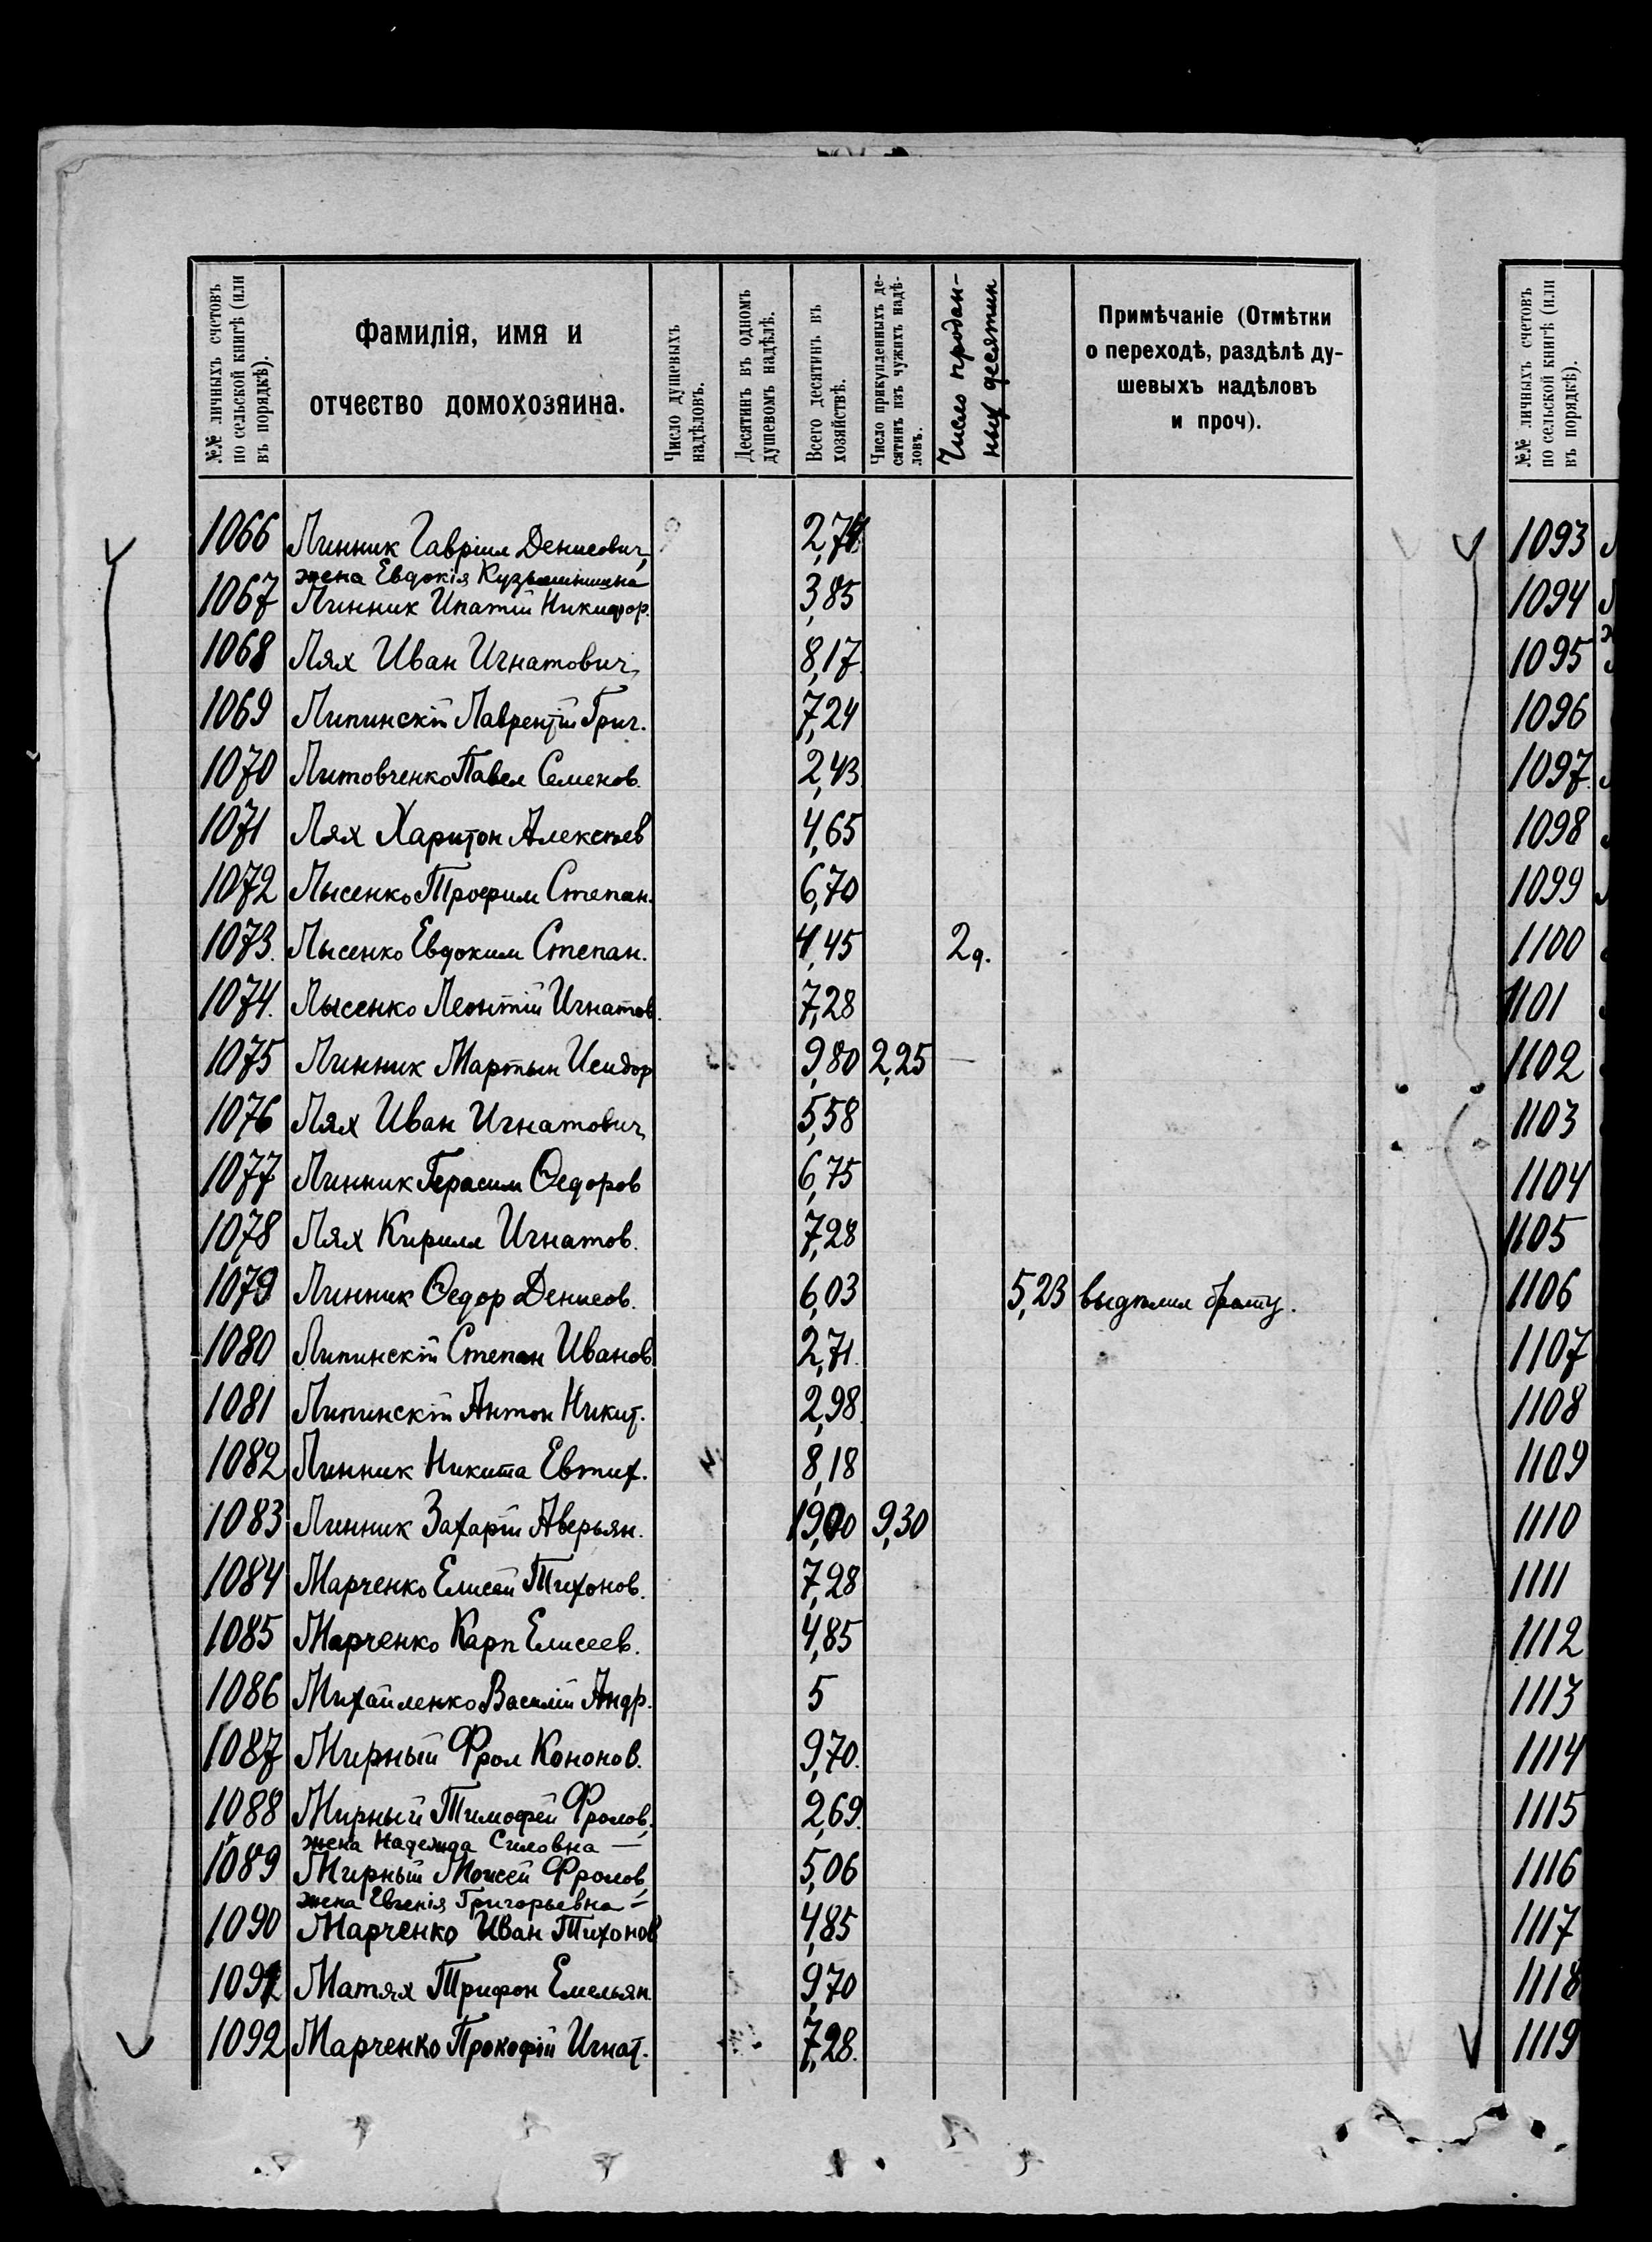 №№ личныхъ счетовъ по сельской книгѣ (или въ порядкѣ).
Фамилія, имя и отчество домохозяина.
Число душевыхъ надѣловъ.
Десятинъ въ одномъ душевомъ надѣлѣ.
Всего десятинъ въ хозяйствѣ.
Число прикупленныхъ десятинъ изъ чужихъ надѣловъ.
Число проданных десятин
Примѣчаніе (Отмѣтки о переходѣ, раздѣлѣ душевыхъ надѣловъ и проч).
1066 Линник Гавріил Денисович,
жена Евдокія Кузьминишна
1067 Линник Ипатій Никифор. 3,85
1068 Лях Иван Игнатович, 8,17
1069 Липинскій Лаврентій Григ. 7,24
1070 Литовченко Павел Семенов. 2,43
1071 Лях Харитон Алексѣев 4,65
1072 Лысенко Трофим Степан. 6,70
1073. Лысенко Евдоким Степан. 4,45 2д.
1074. Лысенко Леонтій Игнатов. 7,28
1075 Линник Мартын Исидор 9,80 2,25 —
1076 Лях Иван Игнатович, 5,58
1077 Линник Герасим Ѳедоров 6,75
1078 Лях Кирилл Игнатов. 7,28
1079 Линник Ѳедор Денисов. 6,03 5,23 выдѣлил брату.
1080 Липинскій Степан Иванов. 2,71.
1081 Липинскій Антон Никит. 2,98.
1082 Линник Никита Евтих. 8,18
1083 Линник Захарій Аверьян. 19,00 9,30
1084 Марченко Елисей Тихонов. 7,28
1085 Марченко Карп Елисеев. 4,85
1086 Михайленко Василій Андр. 5
1087 Мирный Фрол Кононов. 9,70.
1088 Мирный Тимофей Фролов, 2,69.
жена Надежда Силовна —
1089 Мирный Моисей Фролов, 5,06
жена Евгенія Григорьевна —
1090 Марченко Иван Тихонов 4,85
1091 Матях Трифон Емельян. 9,70
1092 Марченко Прокофій Игнат. 7,28.
№№ личныхъ счетовъ по сельской книгѣ (или въ порядкѣ).
1093
1094
1095
1096
1097
1098
1099
1100
1101
1102
1103
1104
1105
1106
1107
1108
1109
1110
1111
1112
1113
1114
1115
1116
1117
1118
1119